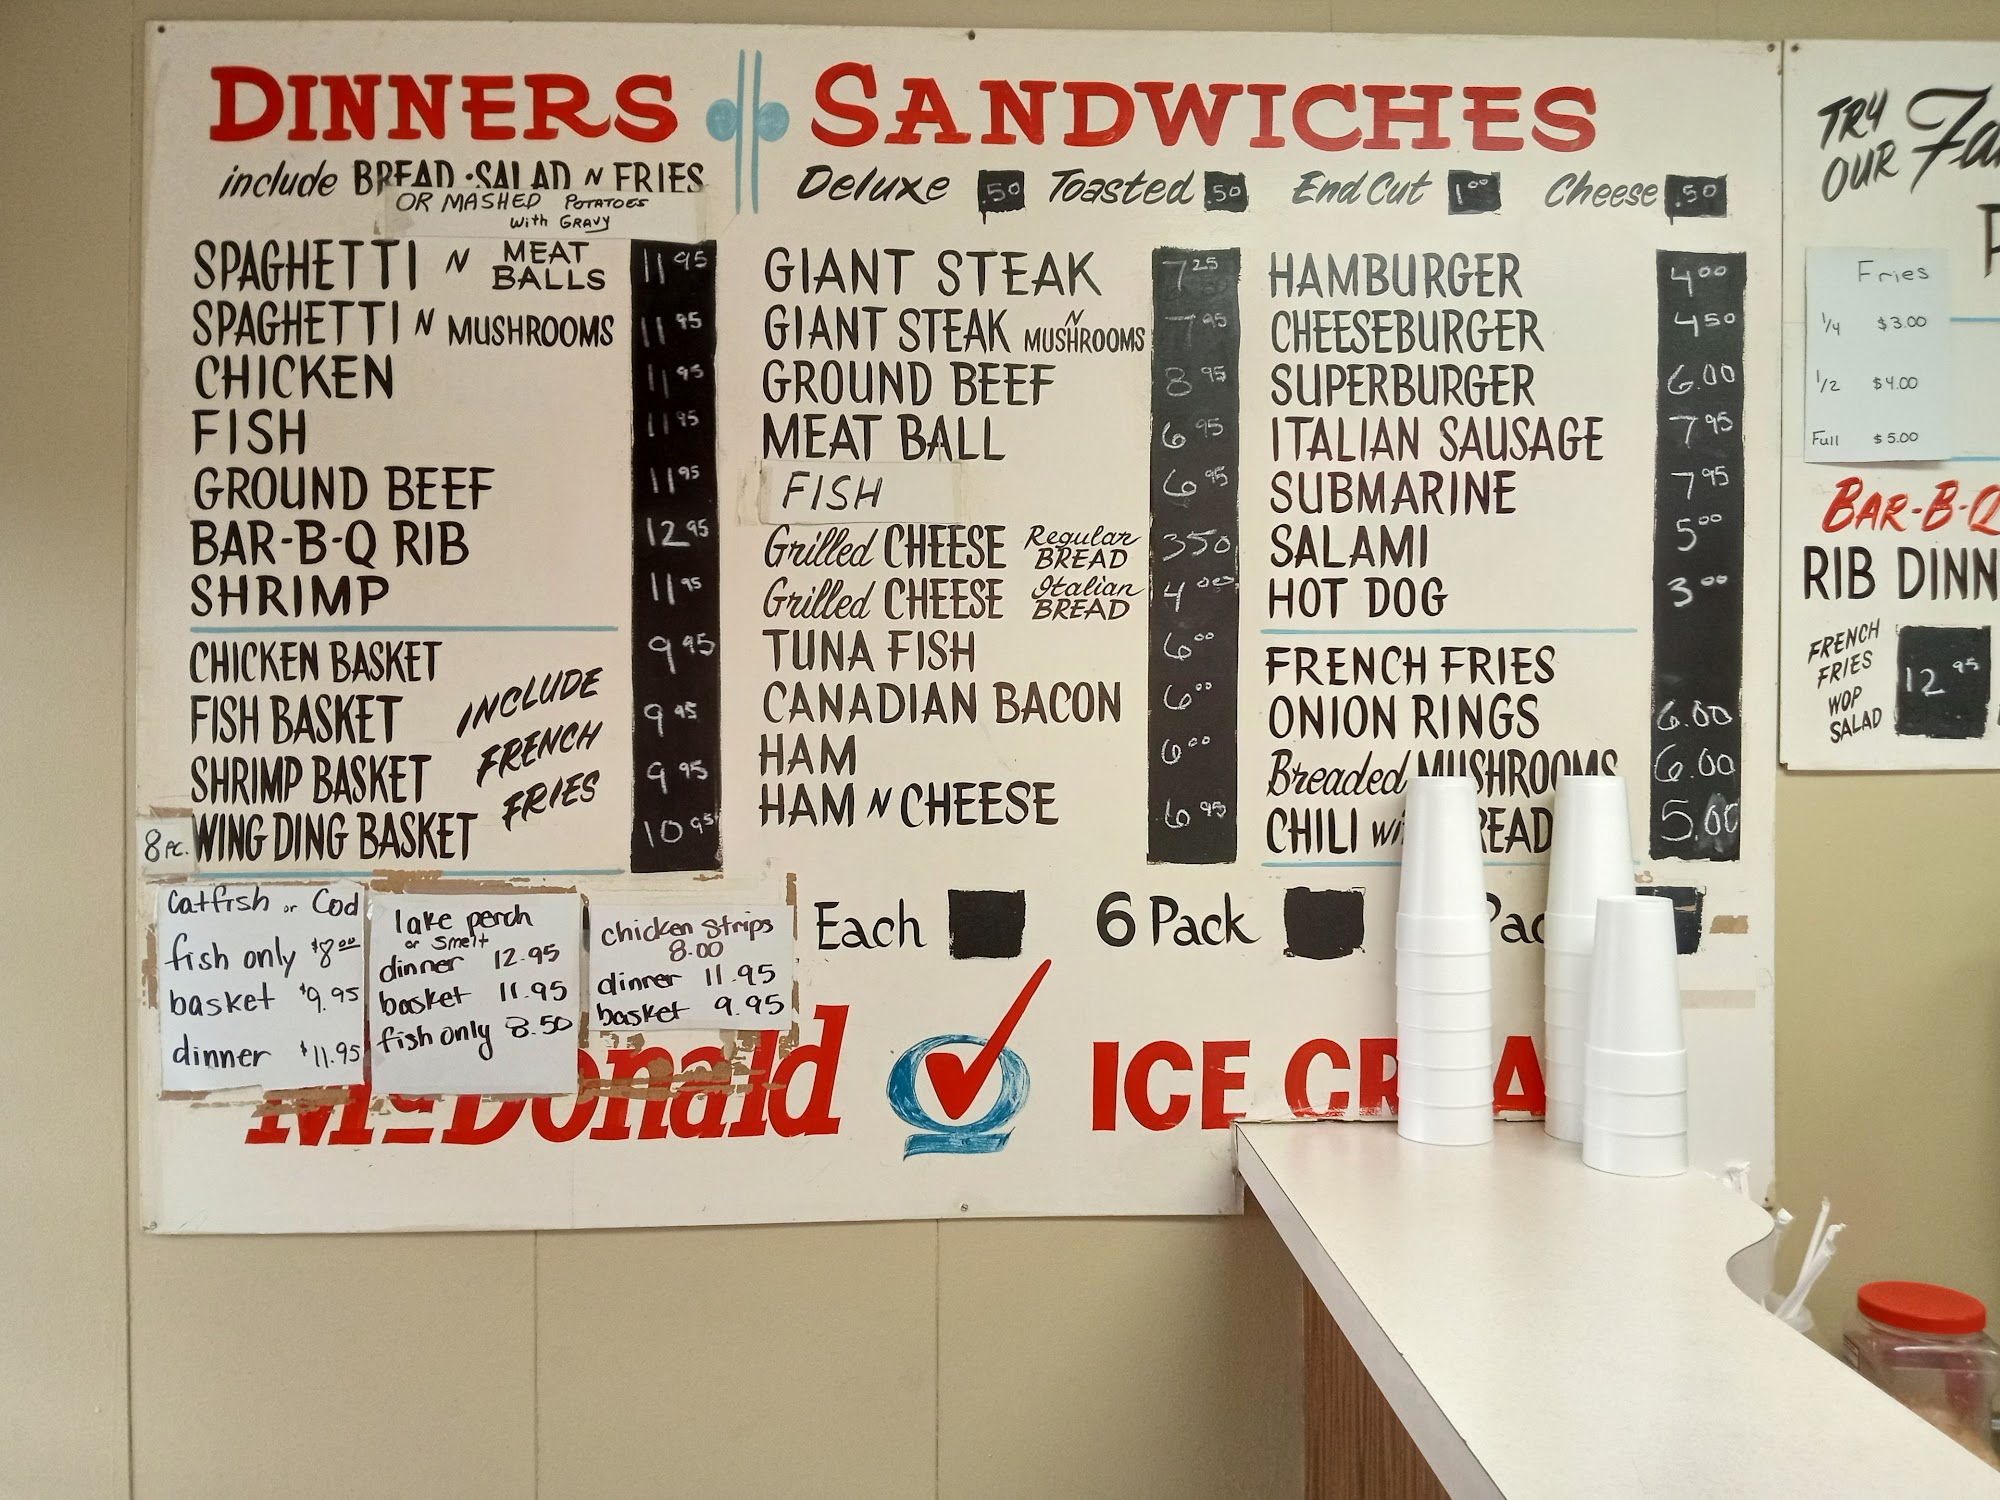 DINNERS
include BREAD • SALAD N FRIES
OR MASHED POTATOES
with GRAVY
SPAGHETTI N MEAT BALLS 11 95
SPAGHETTI N MUSHROOMS 11 95
CHICKEN 11 95
FISH 11 95
GROUND BEEF 11 95
BAR-B-Q RIB 12 95
SHRIMP 11 95
CHICKEN BASKET 9 95
FISH BASKET 9 95
SHRIMP BASKET 9 95
8 PC. WING DING BASKET 10 95
INCLUDE
FRENCH
FRIES
Catfish or Cod
fish only $8 00
basket $9.95
dinner $11.95
lake perch
or smelt
dinner 12.95
basket 11.95
fish only 8.50
chicken strips
8.00
dinner 11.95
basket 9.95
SANDWICHES
Deluxe .50 Toasted .50 End Cut 1 00 Cheese .50
GIANT STEAK 7 25
GIANT STEAK N MUSHROOMS 7 95
GROUND BEEF 8 95
MEAT BALL 6 95
FISH 6 95
Grilled CHEESE Regular BREAD 3 50
Grilled CHEESE Italian BREAD 4 00
TUNA FISH 6 00
CANADIAN BACON 6 00
HAM 6 00
HAM N CHEESE 6 95
HAMBURGER 4 00
CHEESEBURGER 4 50
SUPERBURGER 6.00
ITALIAN SAUSAGE 7 95
SUBMARINE 7 95
SALAMI 5 00
HOT DOG 3 00
FRENCH FRIES
ONION RINGS 6.00
Breaded MUSHROOMS 6.00
CHILI 5.00
Each 6 Pack
McDonald ICE
TRY
OUR
Fries
1/4 $3.00
1/2 $4.00
Full $5.00
BAR-B-Q
RIB
FRENCH
FRIES
WOP
SALAD
12 95